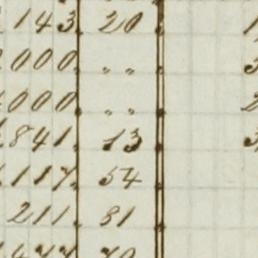 143 20
000 " "
000 " "
841 13
117 54
211 81